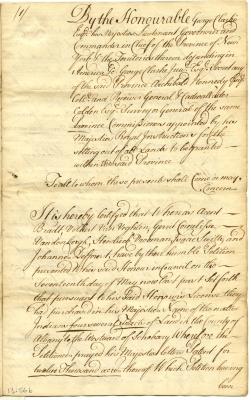 By the Honourable George Clarke
Esqr. his Majesties Lieutenant Governour and
Commander in Chief of the Province of New
York & the Territories thereon depending in
America & George Clarke Junr. Esq. Secretary
of the said Province Archibald Kennedy Esqr.
Receiver General & Cadwallader
Colden Esq. Surveyor General of the same
Province Commissioners appointed by his
Majesties Royal Instructions for the
Setting out of all Lands to be granted
within the said Province
To all to whom these presents shall Come or may
Concern
It is hereby Certifyed that Whereas
and
Johannes have by their humble Petition
presented to his said Honour in Council on the
Seventeenth day of May now last past Set forth
that pursuant to his said Honours Licence they
had purchased in his Majesties Name of the native
Indians four several of Land in the County of
Albany to the Westward of Schohary Wherefore the
Petitioners prayed his Majesties letters Patent for
twelve thousand acres thereof Which Petition having
been